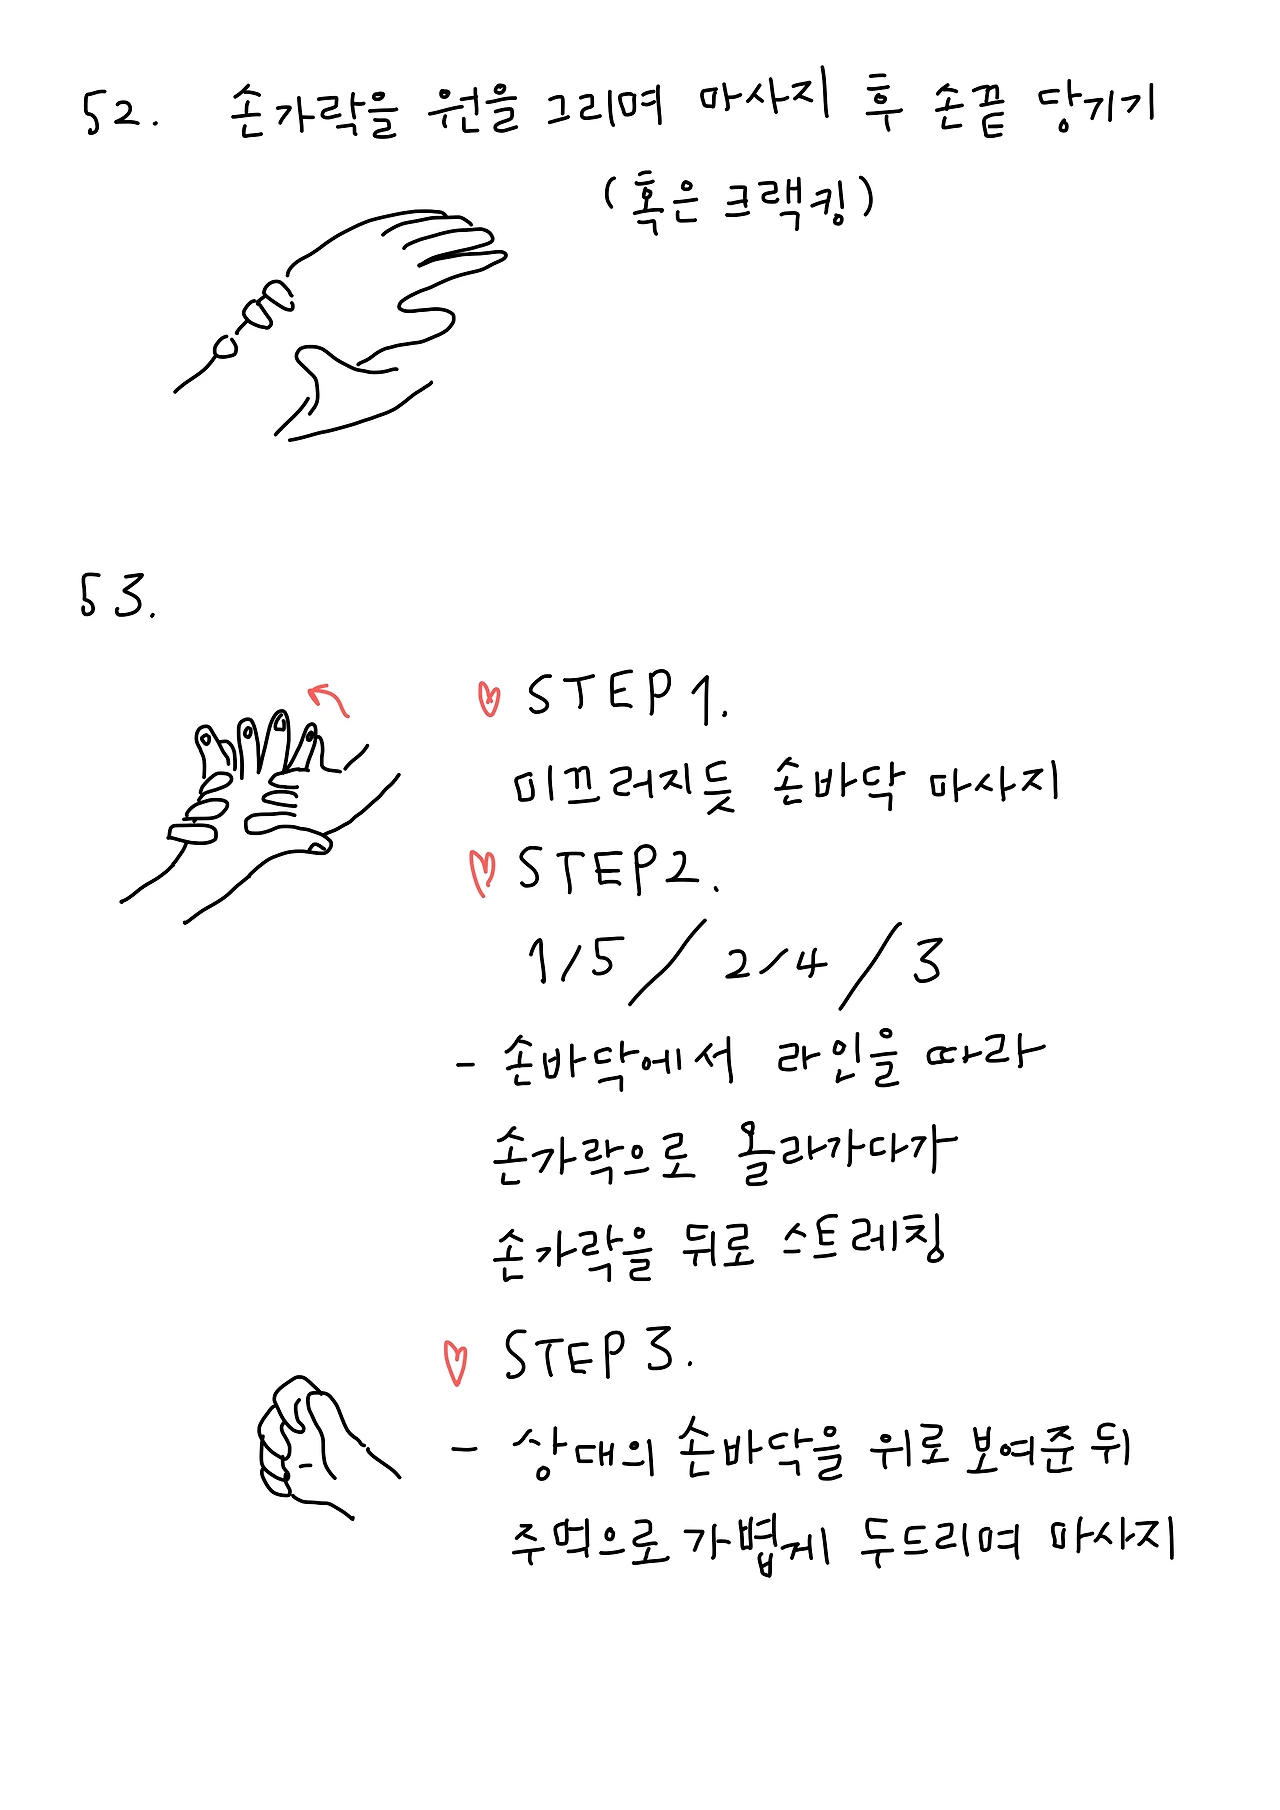 52. 손가락을 원을 그리며 마사지 후 손끝 당기기
(혹은 크랙킹)
53.
STEP 1.
미끄러지듯 손바닥 마사지
STEP 2.
1/5 / 2/4 / 3
- 손바닥에서 라인을 따라
손가락으로 올라가다가
손가락을 뒤로 스트레칭
STEP 3.
- 상대의 손바닥을 위로 보여준 뒤
주먹으로 가볍게 두드리며 마사지